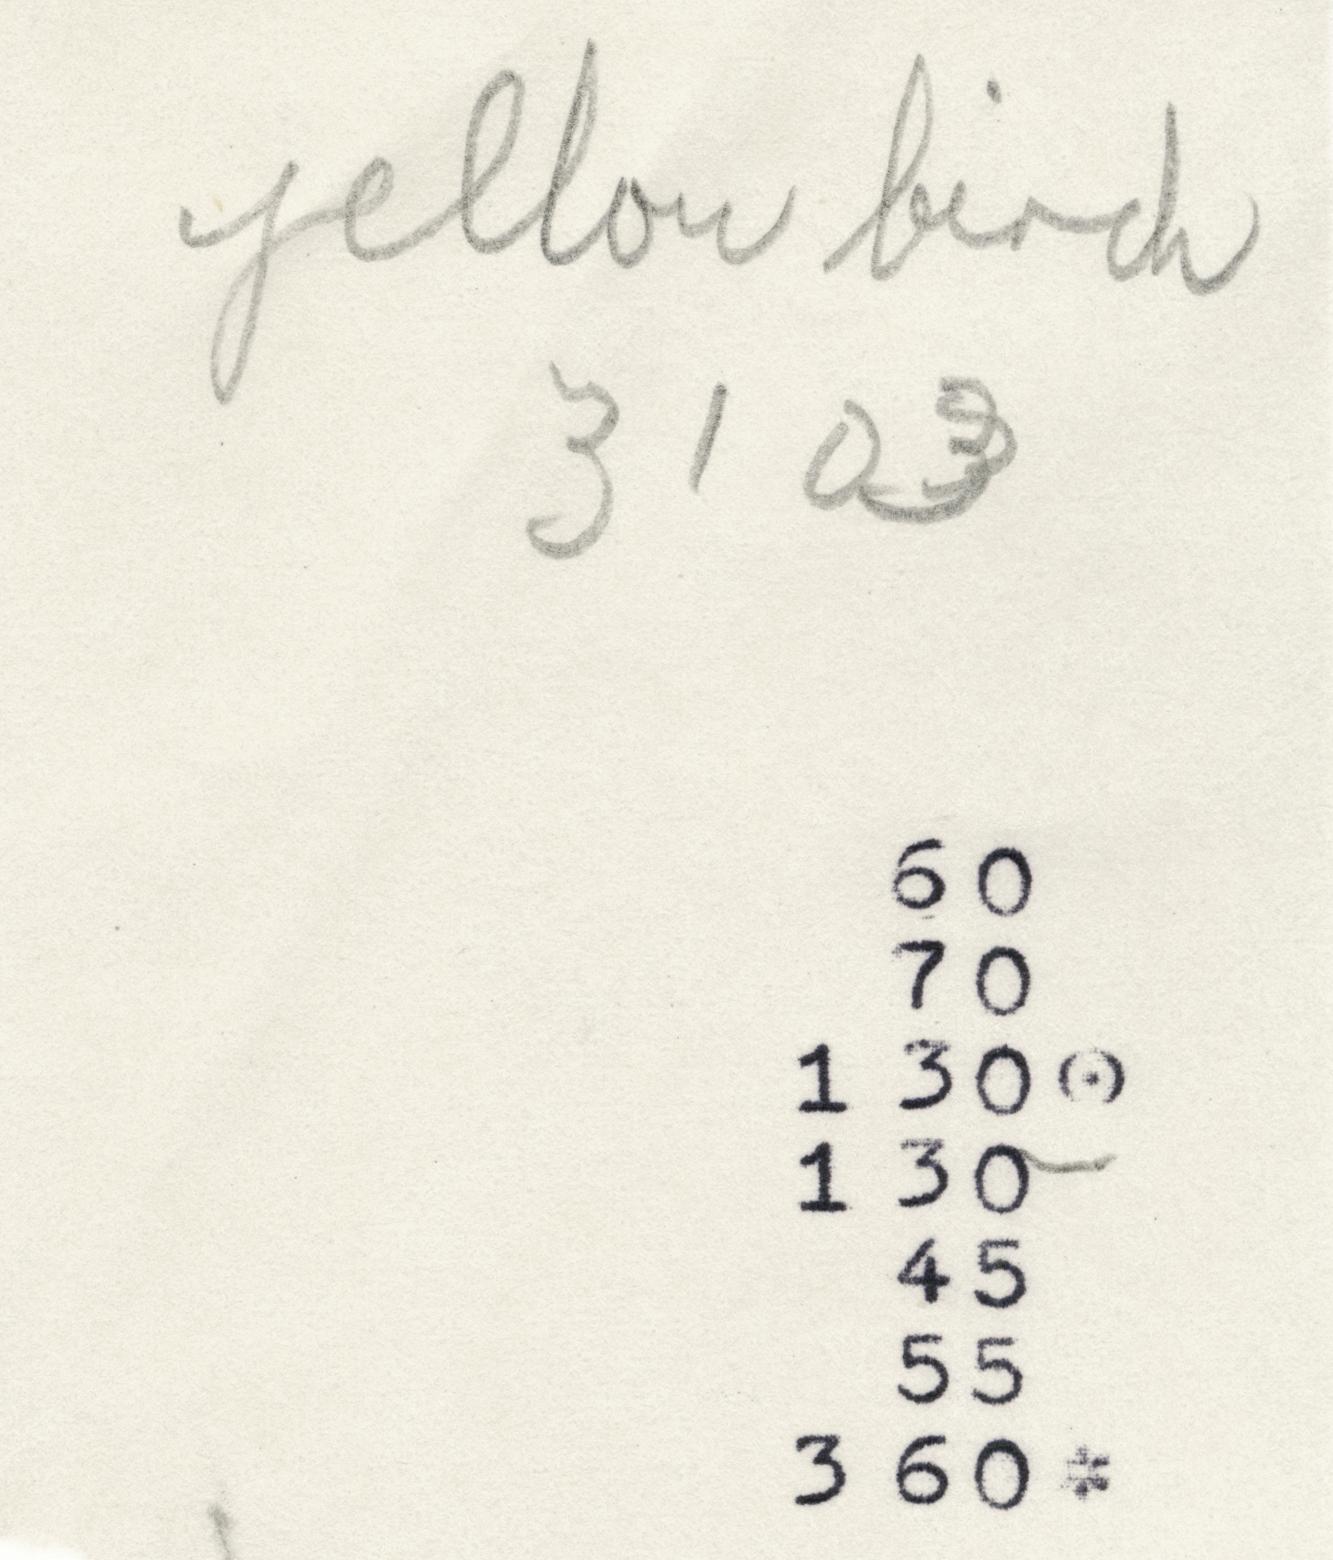 yellow birch
3103
60
70
130
130
45
55
360 *